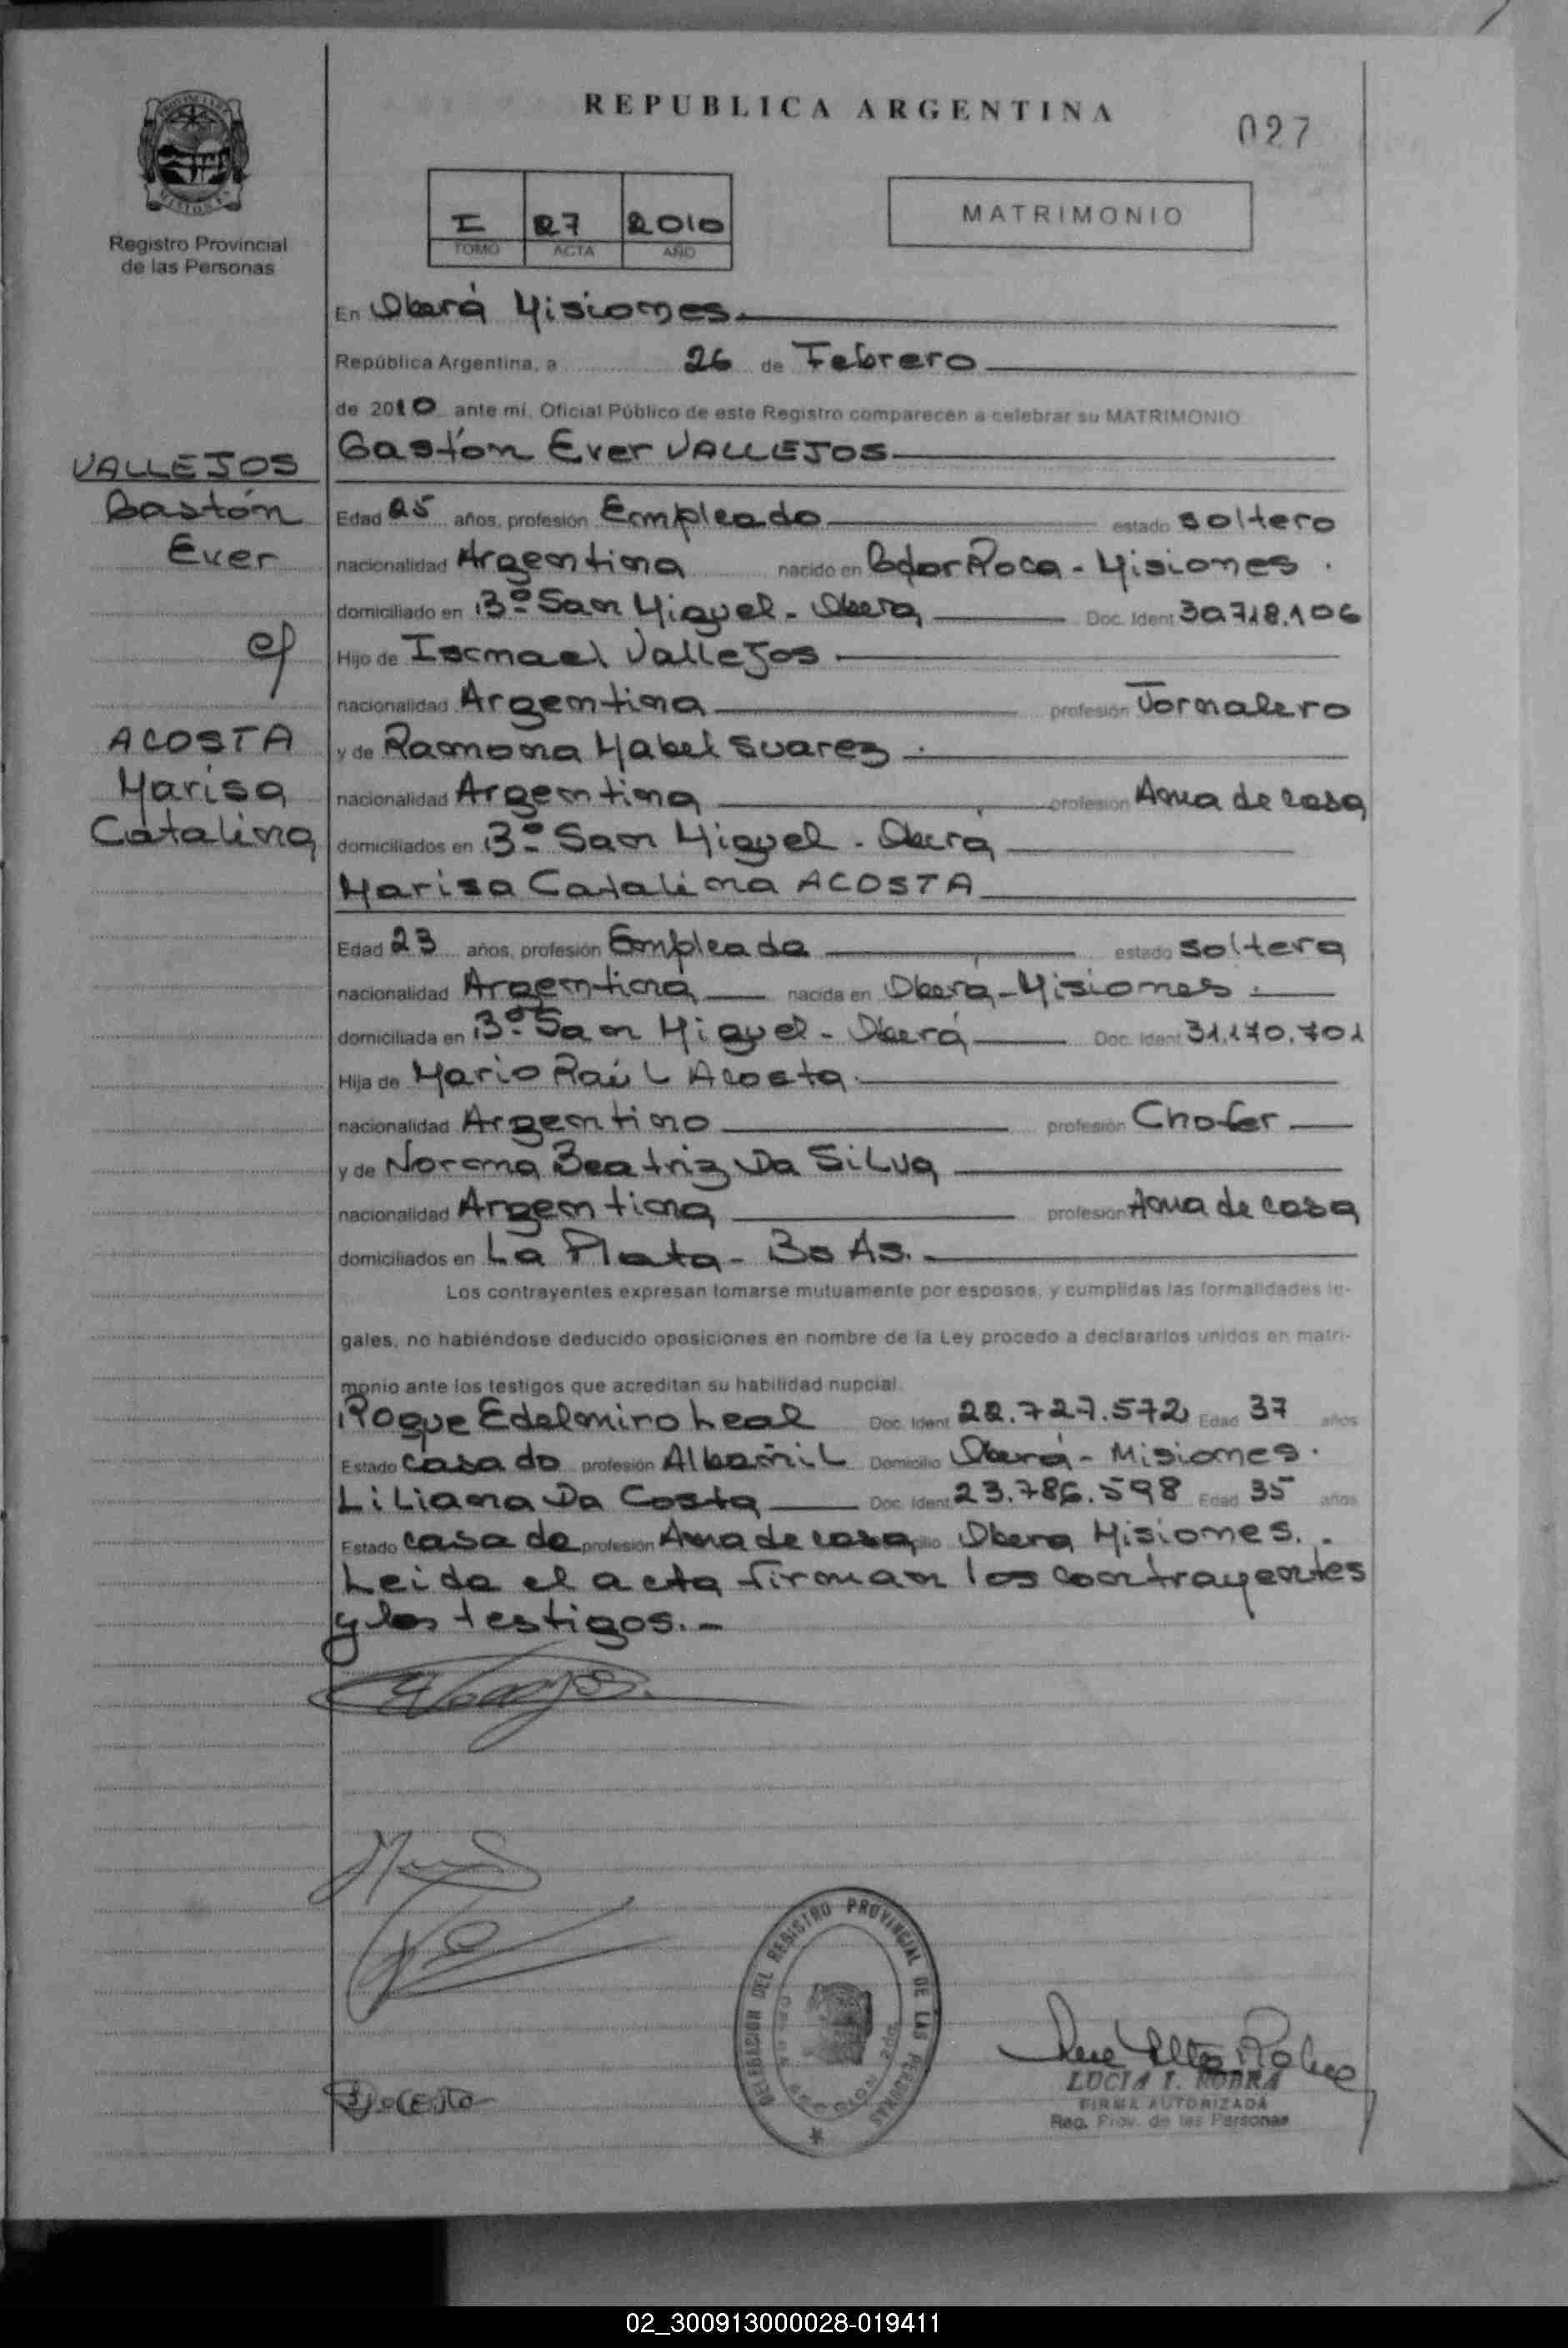 REPUBLICA ARGENTINA
027
PROVINCIA DE
MISIONES
Registro Provincial
de las Personas
I 27 2010
TOMO ACTA AÑO
MATRIMONIO
En Oberá Misiones
República Argentina, a 26 de Febrero
de 2010 ante mí, Oficial Público de este Registro comparecen a celebrar su MATRIMONIO
Gastón Ever VALLEJOS
VALLEJOS
Gastón
Ever
c/
ACOSTA
Marisa
Catalina
Edad 25 años, profesión Empleado estado soltero
nacionalidad Argentina nacido en Gdor Roca - Misiones.
domiciliado en Bº San Miguel - Oberá Doc. Ident 30.718.106
Hijo de Ismael Vallejos
nacionalidad Argentina profesión Jornalero
y de Ramona Mabel Suarez.
nacionalidad Argentina profesión Ama de casa
domiciliados en Bº San Miguel - Oberá
Marisa Catalina ACOSTA
Edad 23 años, profesión Empleada estado soltera
nacionalidad Argentina nacida en Oberá - Misiones.
domiciliada en Bº San Miguel - Oberá Doc. Ident 31.170.701
Hija de Mario Raúl Acosta.
nacionalidad Argentino profesión Chofer
y de Norma Beatriz Da Silva
nacionalidad Argentina profesión Ama de casa
domiciliados en La Plata - Bs As.
Los contrayentes expresan tomarse mutuamente por esposos, y cumplidas las formalidades le-
gales, no habiéndose deducido oposiciones en nombre de la Ley procedo a declararlos unidos en matri-
monio ante los testigos que acreditan su habilidad nupcial.
Roque Edelmiro Leal Doc. Ident 22.727.572 Edad 37 años
Estado casado profesión Albañil Domicilio Oberá - Misiones.
Liliana Da Costa Doc. Ident 23.786.598 Edad 35 años
Estado casada profesión Ama de casa Obera Misiones.
Leida el acta firman los contrayentes
y los testigos.-
DELEGACION DEL REGISTRO PROVINCIAL DE LAS PERSONAS
LUCIA I. ROBRA
FIRMA AUTORIZADA
Reg. Prov. de las Personas
02_300913000028-019411